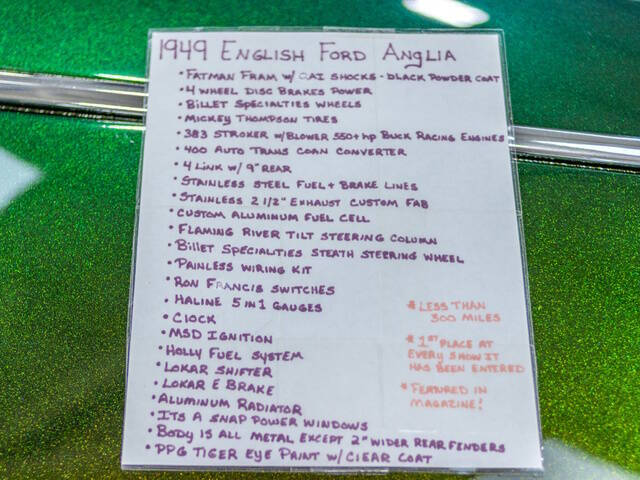 1949 ENGLISH FORD ANGLIA
• FATMAN FRAM W/ QAI SHOCKS - BLACK POWDER COAT
• 4 WHEEL DISC BRAKES POWER
• BILLET SPECIALTIES WHEELS
• MICKEY THOMPSON TIRES
• 383 STROKER W/BLOWER 550+hp BUCK RACING ENGINES
• 400 AUTO TRANS COAN CONVERTER
• 4 LINK W/ 9" REAR
• STAINLESS STEEL FUEL + BRAKE LINES
• STAINLESS 2 1/2" EXHAUST CUSTOM FAB
• CUSTOM ALUMINUM FUEL CELL
• FLAMING RIVER TILT STEERING COLUMN
• BILLET SPECIALITIES STEATH STERRING WHEEL
• PAINLESS WIRING KIT
• RON FRANCIS SWITCHES
• HALINE 5 IN 1 GAUGES
• CLOCK
• MSD IGNITION
• HOLLY FUEL SYSTEM
• LOKAR SHIFTER
• LOKAR E BRAKE
• ALUMINUM RADIATOR
• ITS A SNAP POWER WINDOWS
• BODY IS ALL METAL EXCEPT 2" WIDER REAR FENDERS
• PPG TIGER EYE PAINT W/ CLEAR COAT
* LESS THAN
300 MILES
* 1ST PLACE AT
EVERY SHOW IT
HAS BEEN ENTERED
* FEATURED IN
MAGAZINE!